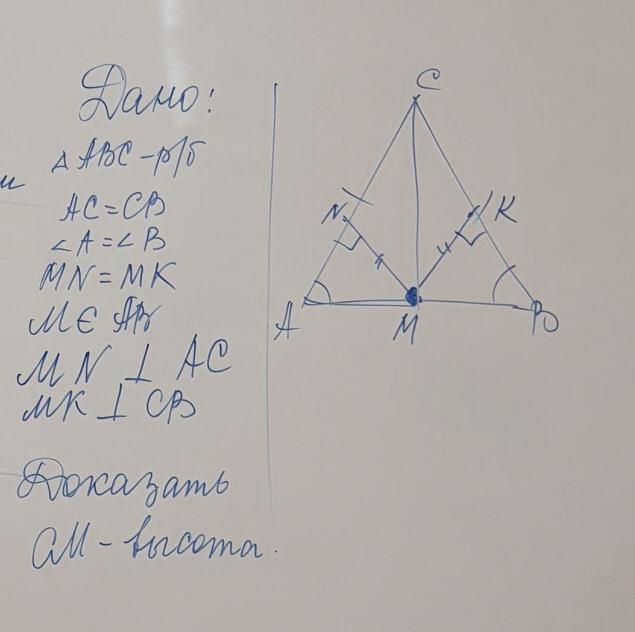 Дано:
и
△ ABC - р/б
AC = CB
∠A = ∠B
MN = MK
M ∈ AB
MN ⊥ AC
MK ⊥ CB
Доказать
CM - высота.
C
N
K
A
M
B